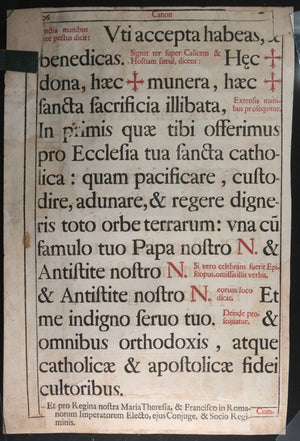 Canon
Vti accepta habeas, &
benedicas. Signat ter super Calicem &
Hostiam simul, dicens: Hęc ✠
dona, hæc ✠ munera, hæc ✠
ſancta ſacrificia illibata, Extensis mani-
bus prosequitur.
In primis quæ tibi offerimus
pro Eccleſia tua ſancta catho-
lica: quam pacificare, cuſto-
dire, adunare, & regere digne-
ris toto orbe terrarum: vna cũ
famulo tuo Papa noſtro N. &
Antiſtite noſtro N. Si vero celebrans fuerit Epi-
scopus, omissis illis verbis,
& Antiſtite noſtro N. eorum loco
dicat, Et
me indigno ſeruo tuo. Deinde pro-
sequatur. &
omnibus orthodoxis, atque
catholicæ & apoſtolicæ fidei
cultoribus.
Et pro Regina noſtra Maria Thereſia, & Franciſco in Roma-
norum Imperatorem Electo, ejus Conjuge, & Socio Regi-
minis.
Com-